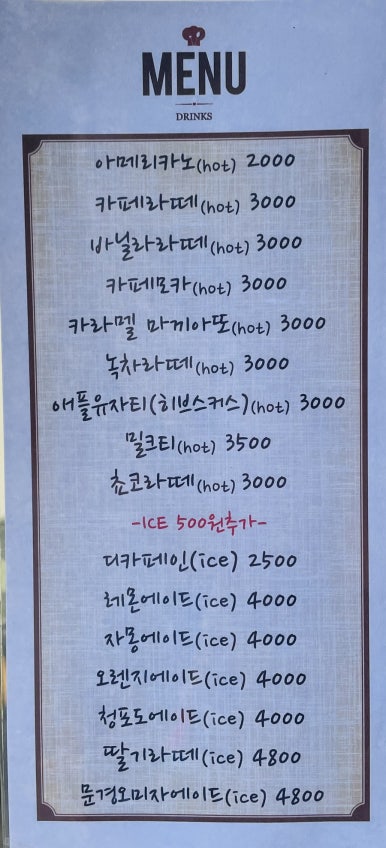 MENU
DRINKS
아메리카노(hot) 2000
카페라떼(hot) 3000
바닐라라떼(hot) 3000
카페모카(hot) 3000
카라멜 마끼아또(hot) 3000
녹차라떼(hot) 3000
애플유자티(히브스커스)(hot) 3000
밀크티(hot) 3500
쵸코라떼(hot) 3000
-ICE 500원추가-
디카페인(ice) 2500
레몬에이드(ice) 4000
자몽에이드(ice) 4000
오렌지에이드(ice) 4000
청포도에이드(ice) 4000
딸기라떼(ice) 4800
문경오미자에이드(ice) 4800